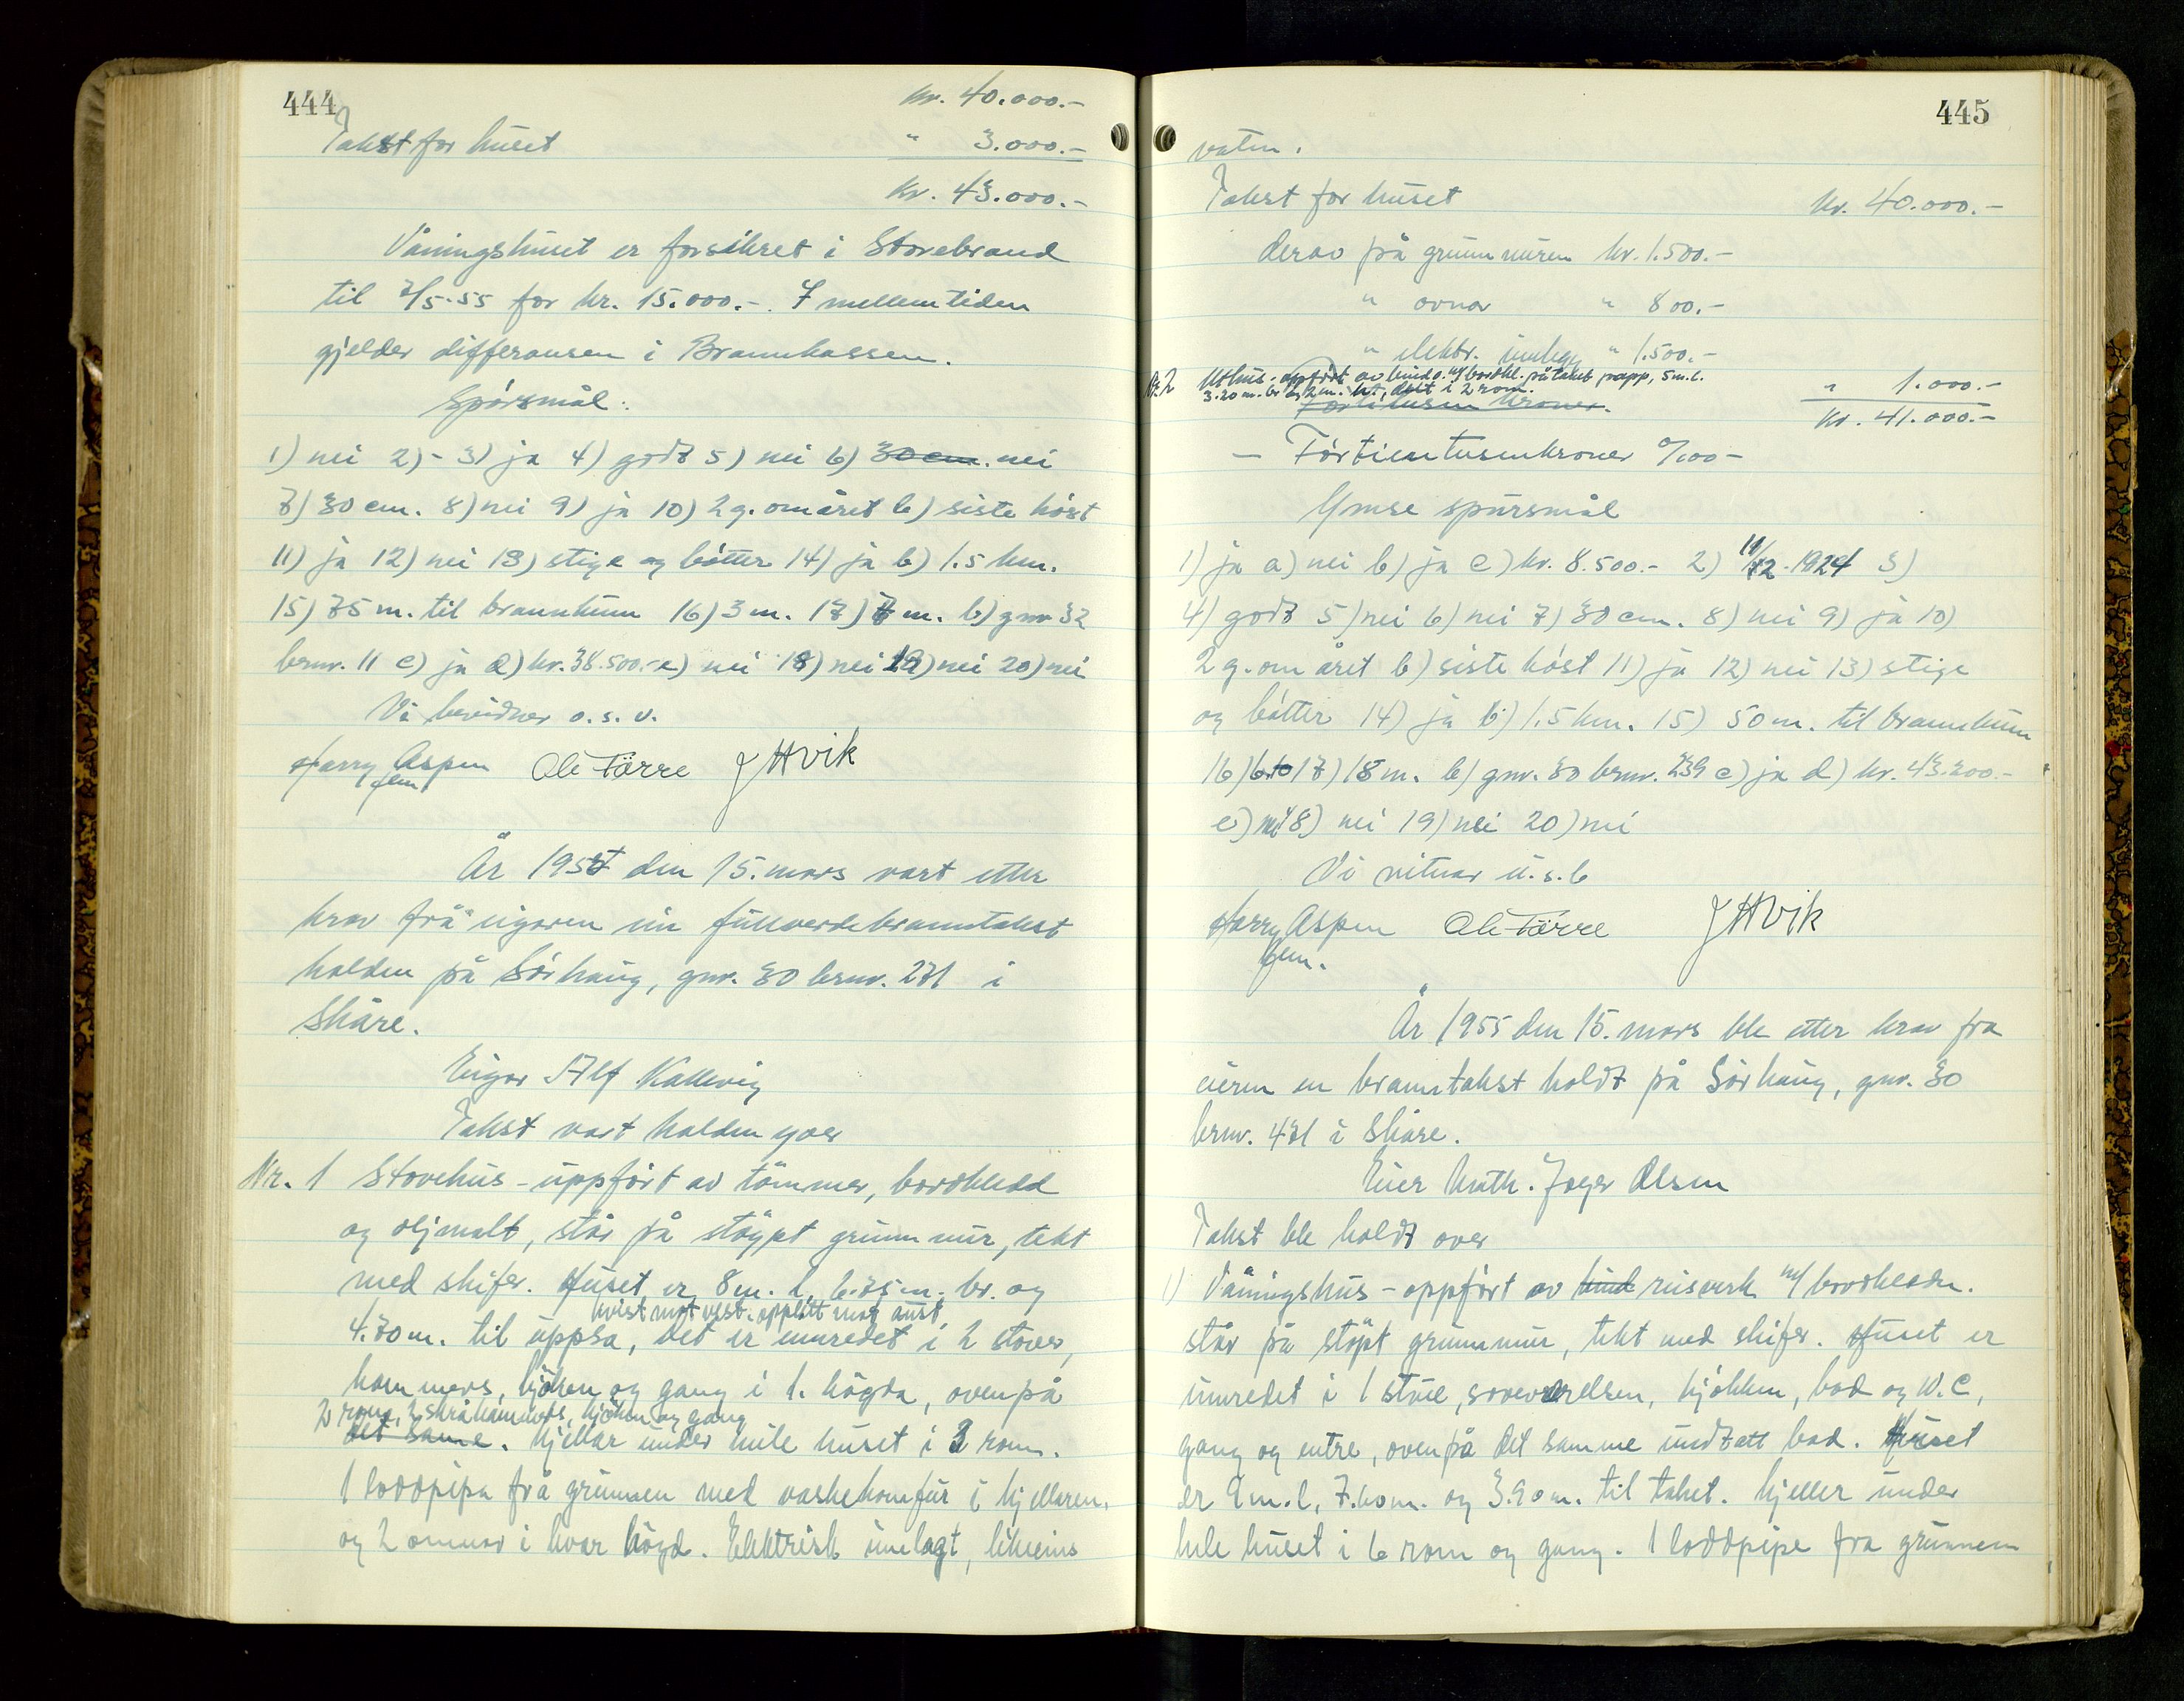 444
kr. 40.000.-
Takst for huset " 3.000.-
kr. 43.000.-
Våningshuset er forsikret i Storebrand
til 7/5-55 for kr. 15.000.-. I mellemtiden
gjelder differansen i Brannkassen.
Spørsmål:
1) nei 2) - 3) ja 4) godt 5) nei 6) 30 cm. nei
7) 30 cm. 8) nei 9) ja 10) 2 g. om året b) siste høst
11) ja 12) nei 13) stige og bøtter 14) ja b) 1.5 km.
15) 75 m. til brannkum 16) 3 m. 17) 7 m. b) gnr 32
brnr. 11 c) ja d) kr. 38.500.- e) nei 18) nei 19) nei 20) nei
Vi bevidner o.s.v.
Harry Aspen Ole Førre J H Vik
fem
År 1955 den 15. mars vart etter
krav frå eigaren ein fullverdebranntakst
halden på Sørhaug, gnr. 30 brnr. 271 i
Skåre.
Eigar Alf Kallevig
Takst vart halden yver
Nr. 1 Stovehus - uppført av tømmer, bordkledd
og oljmalt, står på støypt grunnmur, tekt
med skifer. Huset er 8 m. l. 6.75 m. br. og
kvist mot vest. oppløtt mot aust
4.70 m. til uppsa, det er innredet i 2 stover,
kammers, kjøken og gang i 1. høgda, ovenpå
2 rom, 2 skråkammers, kjøken og gang
det same. Kjellar under heile huset i 3 rom.
1 loddpipa frå grunnen med vaskekomfur i kjellaren.
og 2 omnar i kvar høgd. Elektrisk innlagt, likeeins
445
vatn.
Takst for huset kr. 40.000.-
derav på grunnmuren kr. 1.500.-
" ovnar " 800.-
" elektr. innlegg " 1.500.-
Nr. 2 Uthus - oppført av bindv. m/ bordkl. på taket papp, 5 m. l.
3.20 m. br og 2 m. h., delt i 2 rom. " 1.000.-
Førti tusen kroner.
kr. 41.000.-
- Førtientusenkroner 0/00 -
Ymse spursmål
1) ja a) nei b) ja c) kr. 8.500.- 2) 11/12-1924 3)
4) godt 5) nei 6) nei 7) 30 cm. 8) nei 9) ja 10)
2 g. om året b) siste høst 11) ja 12) nei 13) stige
og bøtter 14) ja b) 1.5 km. 15) 50 m. til brannkum
16) 17) 18 m. b) gnr. 30 brnr. 239 c) ja d) kr. 43.200.-
e) nei 18) nei 19) nei 20) nei
Vi vitnar u.s.b
Harry Aspen Ole Førre J H Vik
fem.
År 1955 den 15. mars ble etter krav fra
eieren en branntakst holdt på Sørhaug, gnr. 30
brnr. 471 i Skåre.
Eier Math. Olsen
Takst ble holdt over
1) Våningshus - oppført av bind reisverk m/ bordkledn.
står på støpt grunnmur, tekt med skifer. Huset er
innredet i 1 stue, soveværelsen, kjøkken, bad og W.C,
gang og entre, ovenpå det samme undtatt bad. Huset
er 9 m. l, 7.60 m. og 3.90 m. til taket. Kjeller under
hele huset i 6 rom og gang. 1 loddpipe fra grunnen